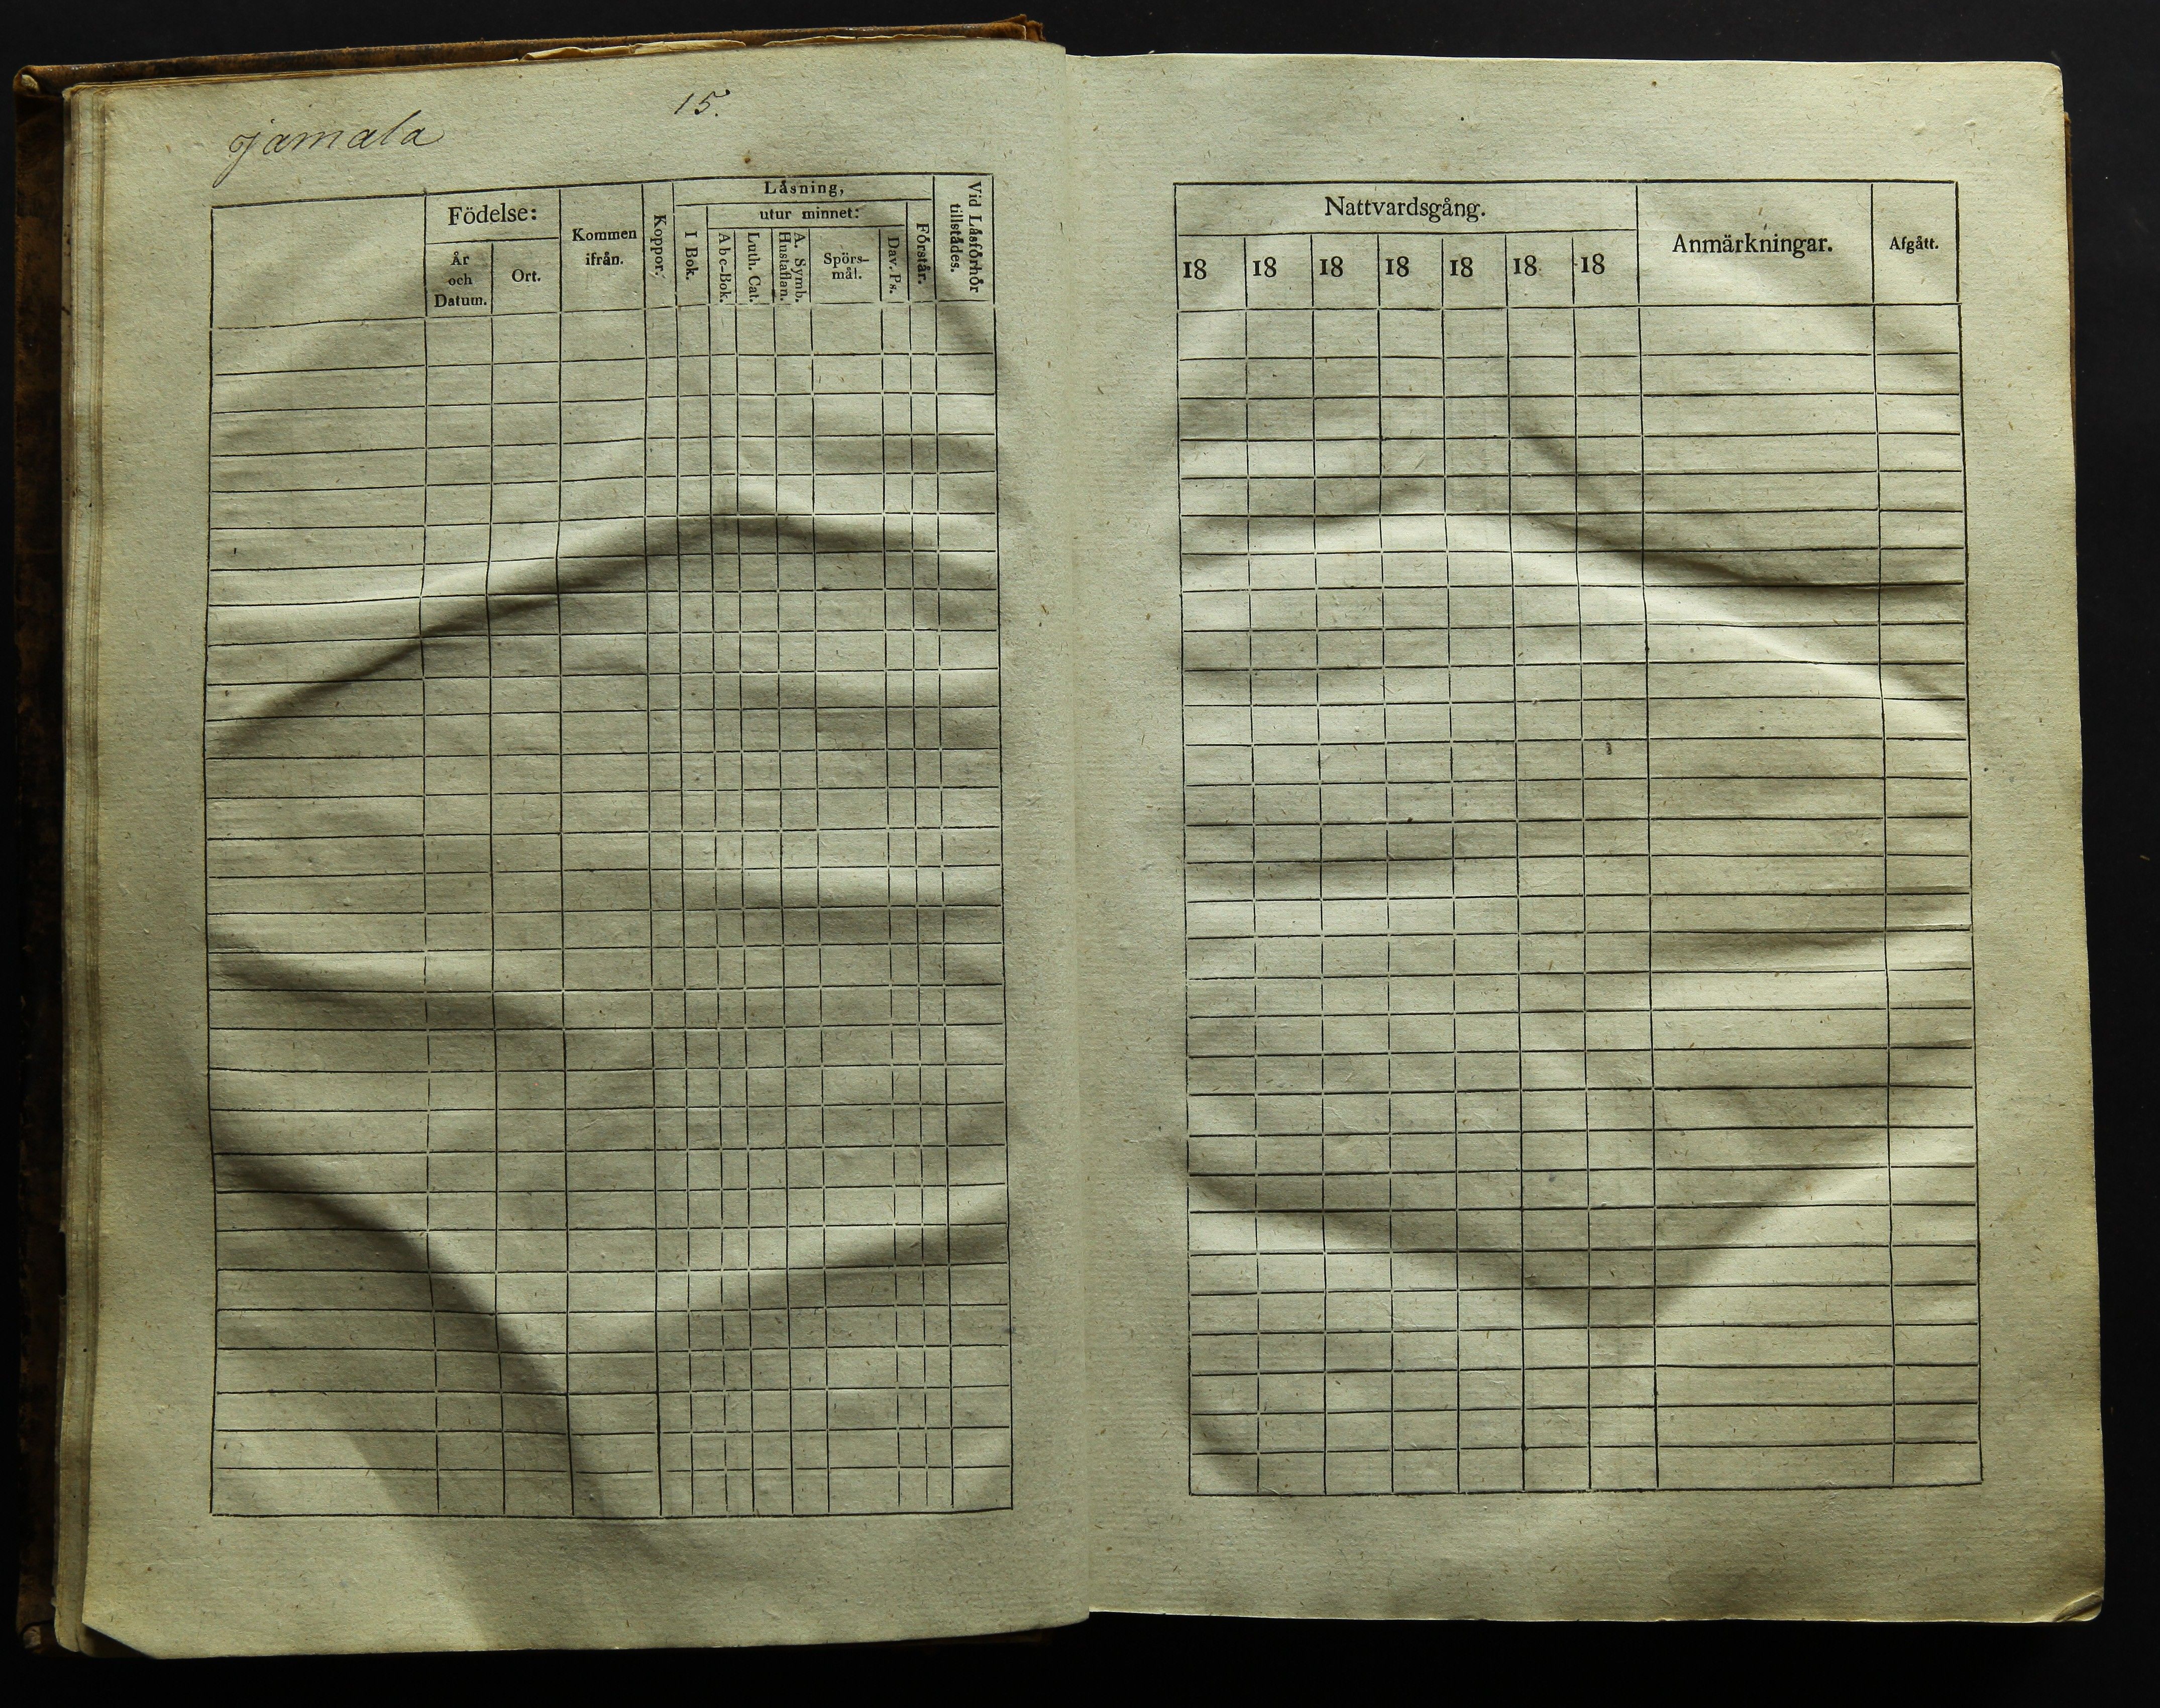 15.
jamala
Födelse:
År
och
Datum.
Ort.
Kommen
ifrån.
Koppor.
Låsning,
I Bok.
utur minnet:
Abc-Bok.
Luth. Cat.
A. Symb.
Hustaflan.
Spörs-
mål.
Dav. Ps.
Förstår.
Vid Låsförhör
tillstådes.
Nattvardsgång.
18 18 18 18 18 18 18
Anmärkningar.
Afgått.